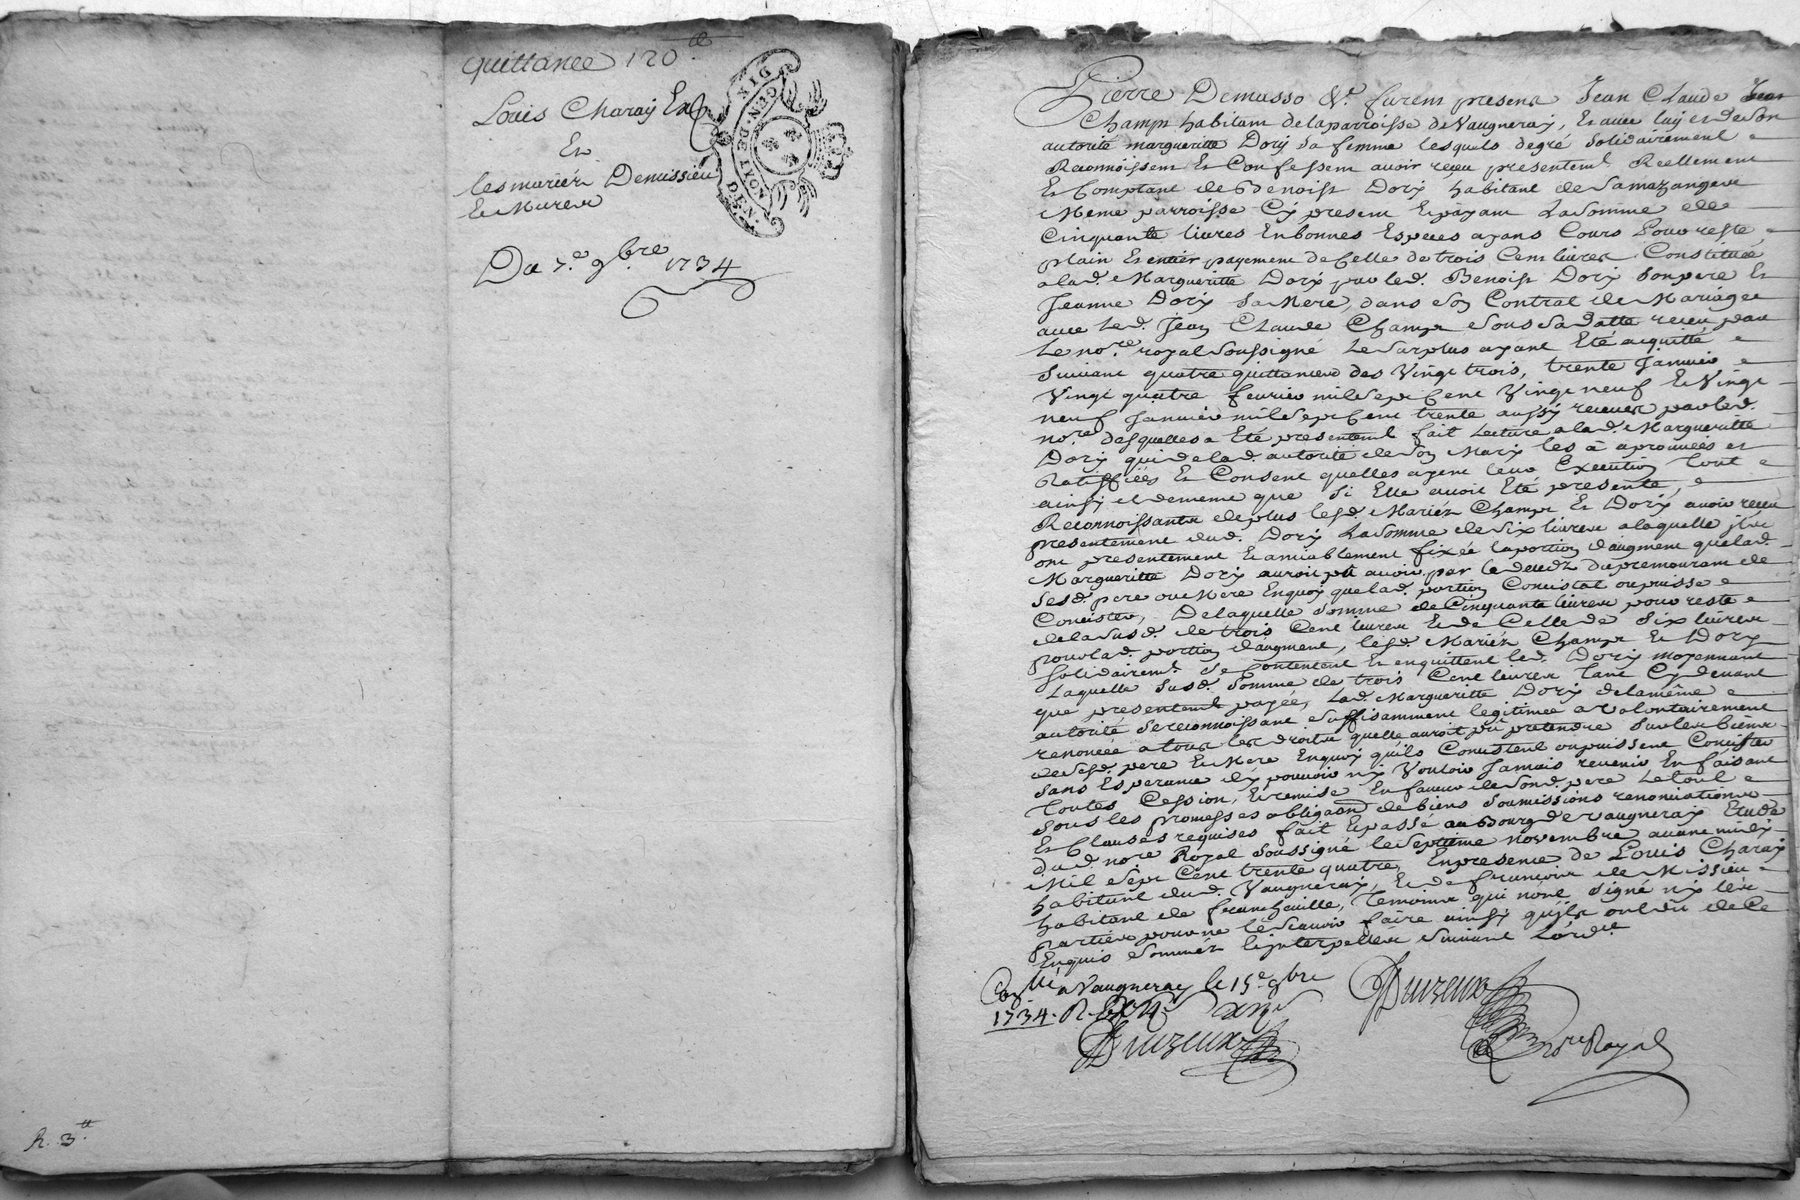 quittance 120 tt
Louis Charay
Et
les mariés Demissieu
Et Murere
Du 7.e 9bre 1734
GEN. DE LYON
R. 3 tt
Pierre Demusso &c. furent presens Jean Claude
Champ habitant de la parroisse de Vaugneray, Et avec luy et de son
autorité margueritte Dory sa femme lesquels degré solidairement
Reconnoissent Et Confessent avoir receu presentemt. Reellement
Et Comptant de Benoist Dory habitant de
Meme parroisse Cy present Et payant La somme de
Cinquante livres En bonnes Especes ayans Cours Pour reste
plain Et entier payement de Celle de trois Cent livres Constituée
a lad. Margueritte Dory par led. Benoist Dory son pere Et
Jeanne Dory sa Mere, dans son Contrat de Mariage
avec led. Jean Claude Champ sous sa datte receu par
Le nore. royal soussigné Le surplus ayant Eté aquitté
suivant quatre quittances des Vingt trois, trente Janvier
Vingt quatre fevrier mil sept Cent Vingt neuf Et Vingt
neuf Janvier mil sept Cent trente aussy receues par led.
nore. desquelles a Eté presentemt. fait Lecture a lad. Margueritte
Dory qui de lad. autorité de son Mary les a aprouvées et
Ratiffiées Et Consent quelles ayent leur Execution tout
ainsy et de meme que si Elle avoit Eté presente,
Reconnoissants de plus lesd. Mariés Champ Et Dory avoir receu
presentement dud. Dory La somme de six livres a laquelle ils
ont presentement Et amiablement fixée la portion d'augment que lad.
Margueritte Dory auroit pû avoir par le deceds du premourant de
sesd. pere ou Mere En quoy que lad. portion Consistat ou puisse
Consister, De laquelle somme de Cinquante livres pour reste
de la susd. de trois Cent livres Et de Celle de six livres
pour lad. portion d'augment, lesd. Mariés Champ Et Dory
solidairemt. se Contentent Et en quittent led. Dory moyennant
Laquelle susd. somme de trois Cent livres tant Cy devant
que presentement payée, Lad. Margueritte Dory de la même
autorité se reconnoissant suffisamment legitimée a volontairement
renoncée a tous les droits quelle auroit pû pretendre sur les biens
de sesd. pere Et Mere En quoy qu'ils Consistent ou puissent Consister
sans Esperance d'y pouvoir ny Vouloir Jamais revenir En faisant
toutes Cession, Et remise En faveur de sond. pere Le tout
sous les promesses obligaon. de biens soumissions renonciations
Et Clauses requises fait Et passé au Bourg de Vaugneray Etude
dud. nore. Royal soussigné le septieme novembre avant midy
Mil sept Cent trente quatre, En presence de Louis Charay
habitant dud. Vaugneray, Et de francois de Missieu
habitant de francheville, temoins qui n'ont signé ny les
parties pour ne le scavoir faire ainsy qu'ils ont dit de Ce
Enquis sommés Et interpellés suivant l'ordce.
Conllé a Vaugneray le 15.e 9bre
1734. R.
nore Royal